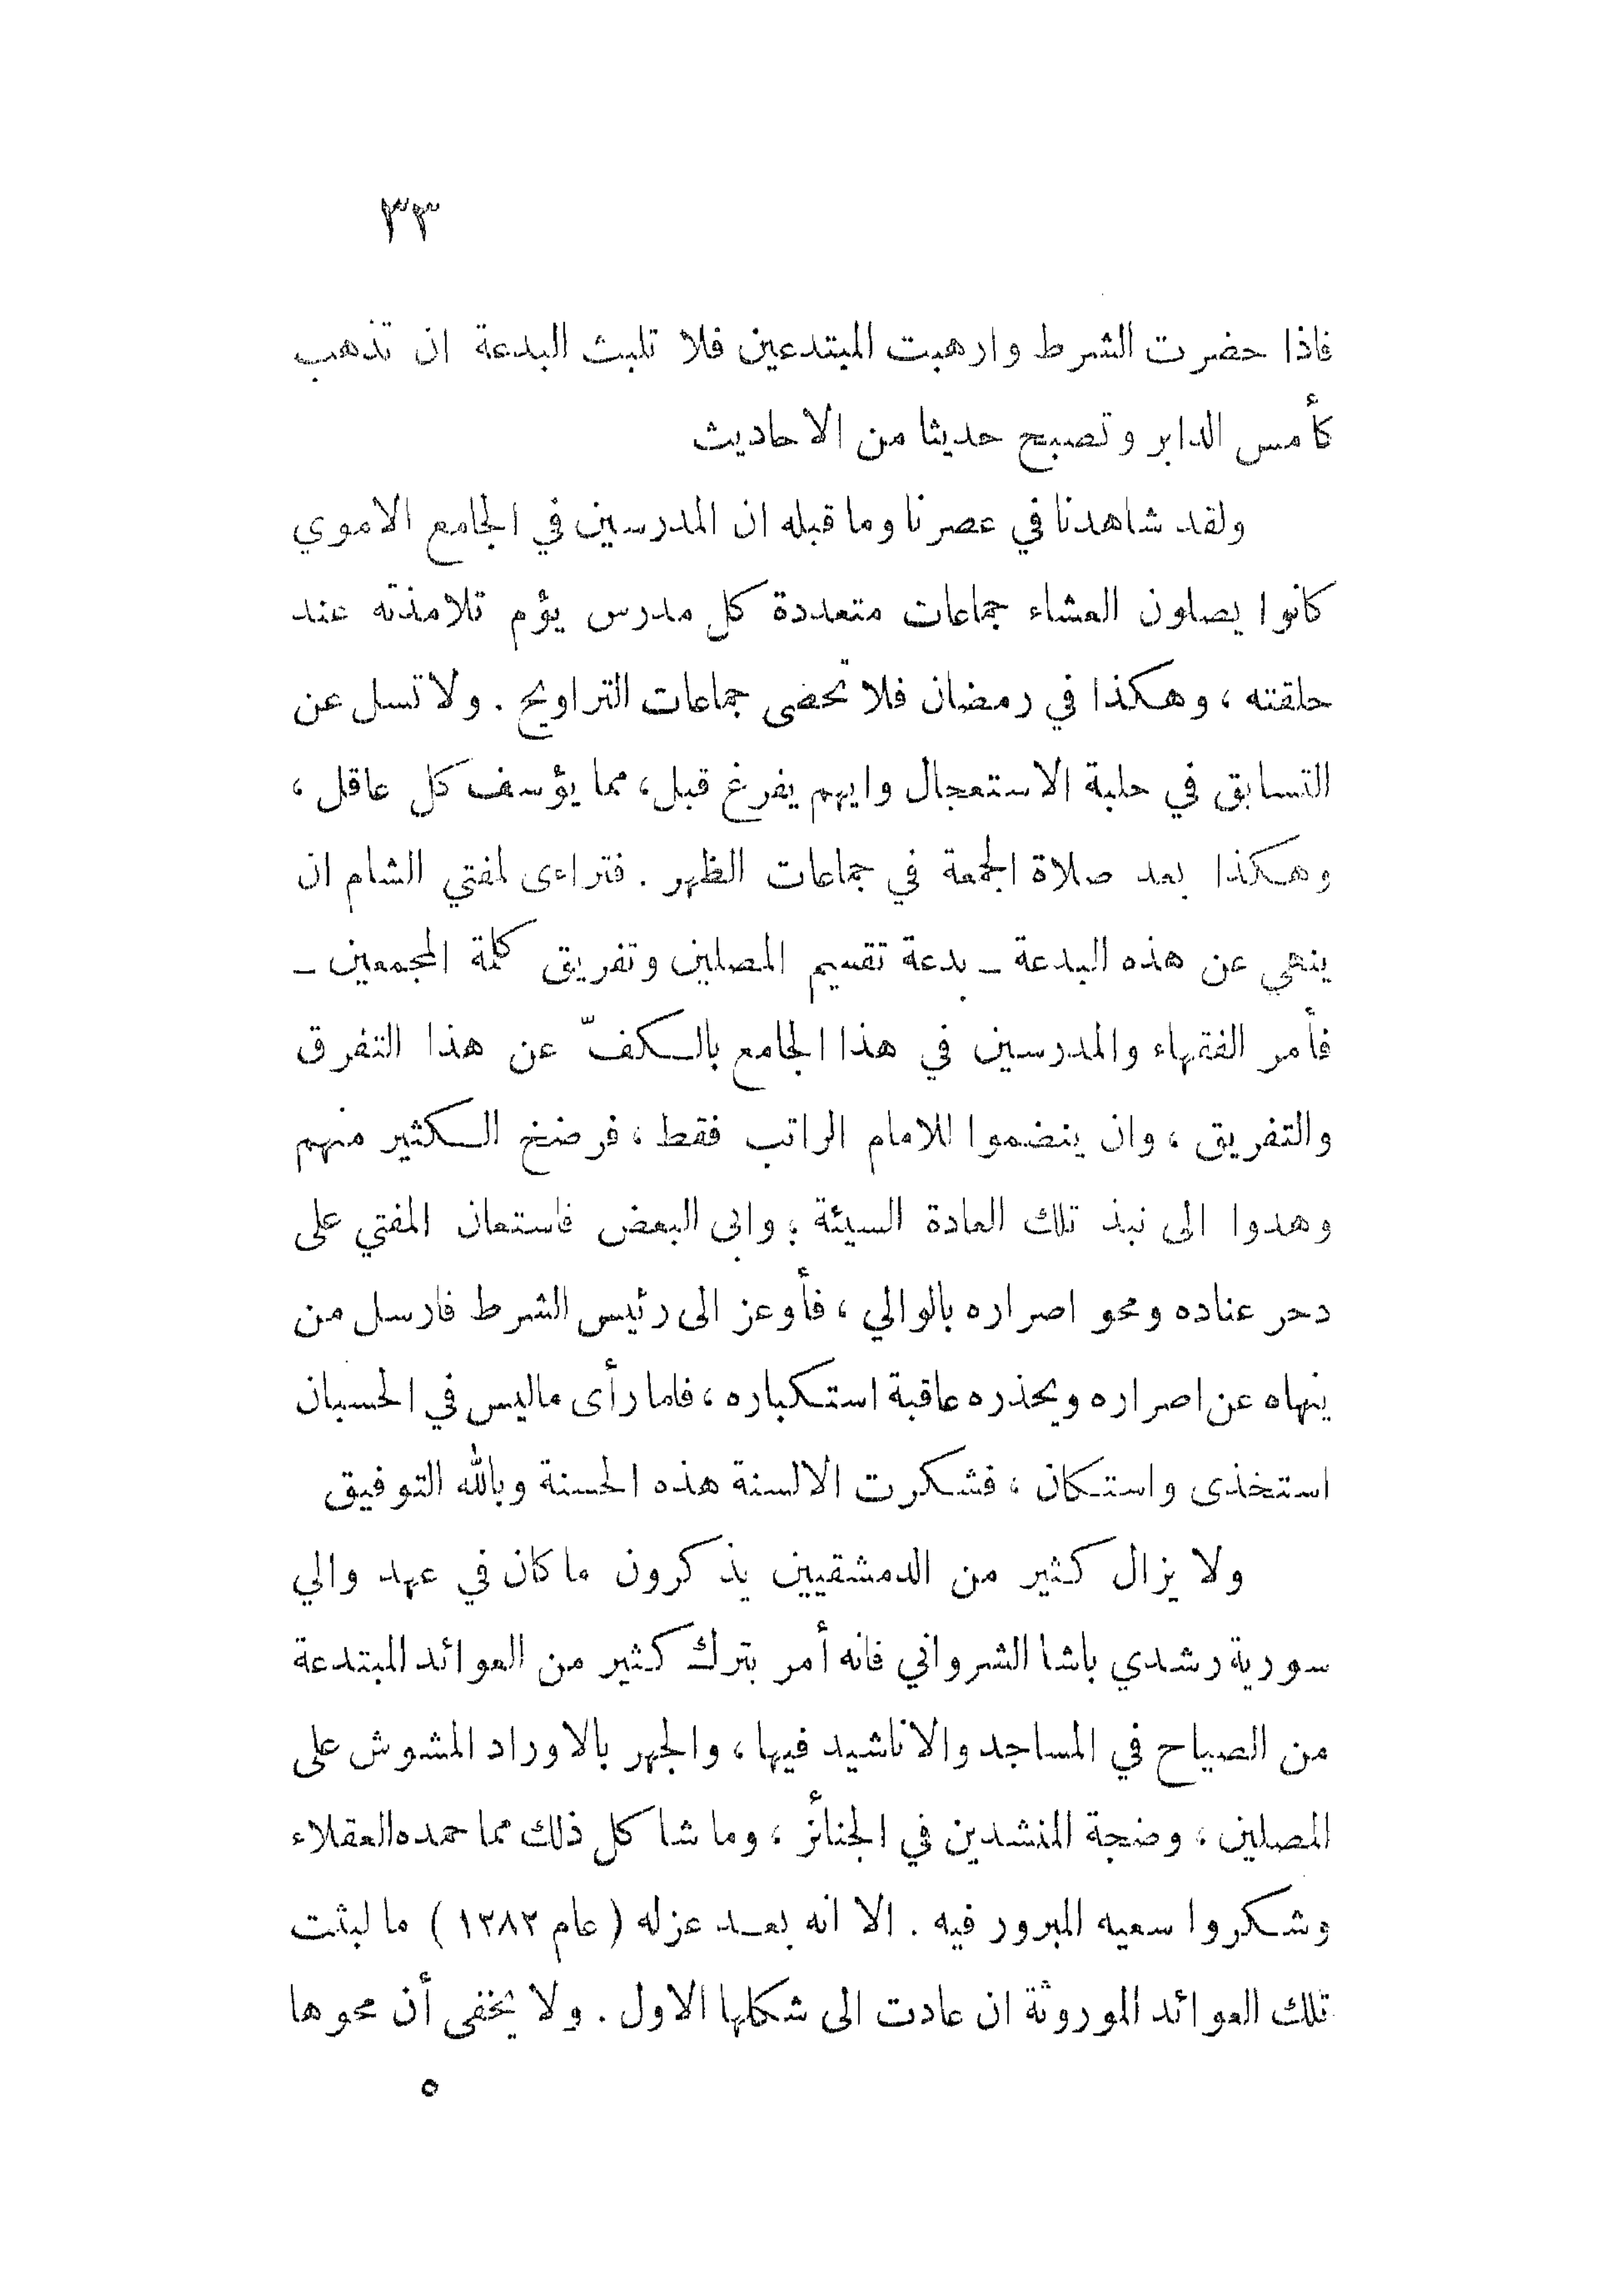 ٣٣
فاذا حضرت الشرط وارهبت المبتدعين فلا تلبث البدعة ان تذهب
كأمس الدابر وتصبح حديثا من الاحاديث
ولقد شاهدنا في عصرنا وما قبله ان المدرسين في الجامع الاموي
كانوا يصلون العشاء جماعات متعددة كل مدرس يؤم تلامذته عند
حلقته ، وهكذا في رمضان فلا تحصى جماعات التراويح . ولا تسل عن
التسابق في حلبة الاستعجال وايهم يفرغ قبل، مما يؤسف كل عاقل ،
وهكذا بعد صلاة الجمعة في جماعات الظهر . فتراءى لمفتي الشام ان
ينهي عن هذه البدعة ـ بدعة تقسيم المصلين وتفريق كلمة المجمعين ـ
فأمر الفقهاء والمدرسين في هذا الجامع بالكفّ عن هذا التفرق
والتفريق ، وان ينضموا للامام الراتب فقط ، فرضخ الكثير منهم
وهدوا الى نبذ تلك العادة السيئة ؛ وابى البعض فاستعان المفتي على
دحر عناده ومحو اصراره بالوالي ، فأوعز الى رئيس الشرط فارسل من
ينهاه عن اصراره ويحذره عاقبة استكباره ، فلما رأى ماليس في الحسبان
استخذى واستكان ، فشكرت الالسنة هذه الحسنة وبالله التوفيق
ولا يزال كثير من الدمشقيين يذكرون ما كان في عهد والي
سورية رشدي باشا الشرواني فانه أمر بترك كثير من العوائد المبتدعة
من الصياح في المساجد والاناشيد فيها ، والجهر بالاوراد المشوش على
المصلين ، وضجة المنشدين في الجنائز ، وما شاكل ذلك مما حمده العقلاء
وشكروا سعيه المبرور فيه . الا انه بعد عزله ( عام ١٢٨٢ ) ما لبثت
تلك العوائد الموروثة ان عادت الى شكلها الاول . ولا يخفى أن محوها
٥